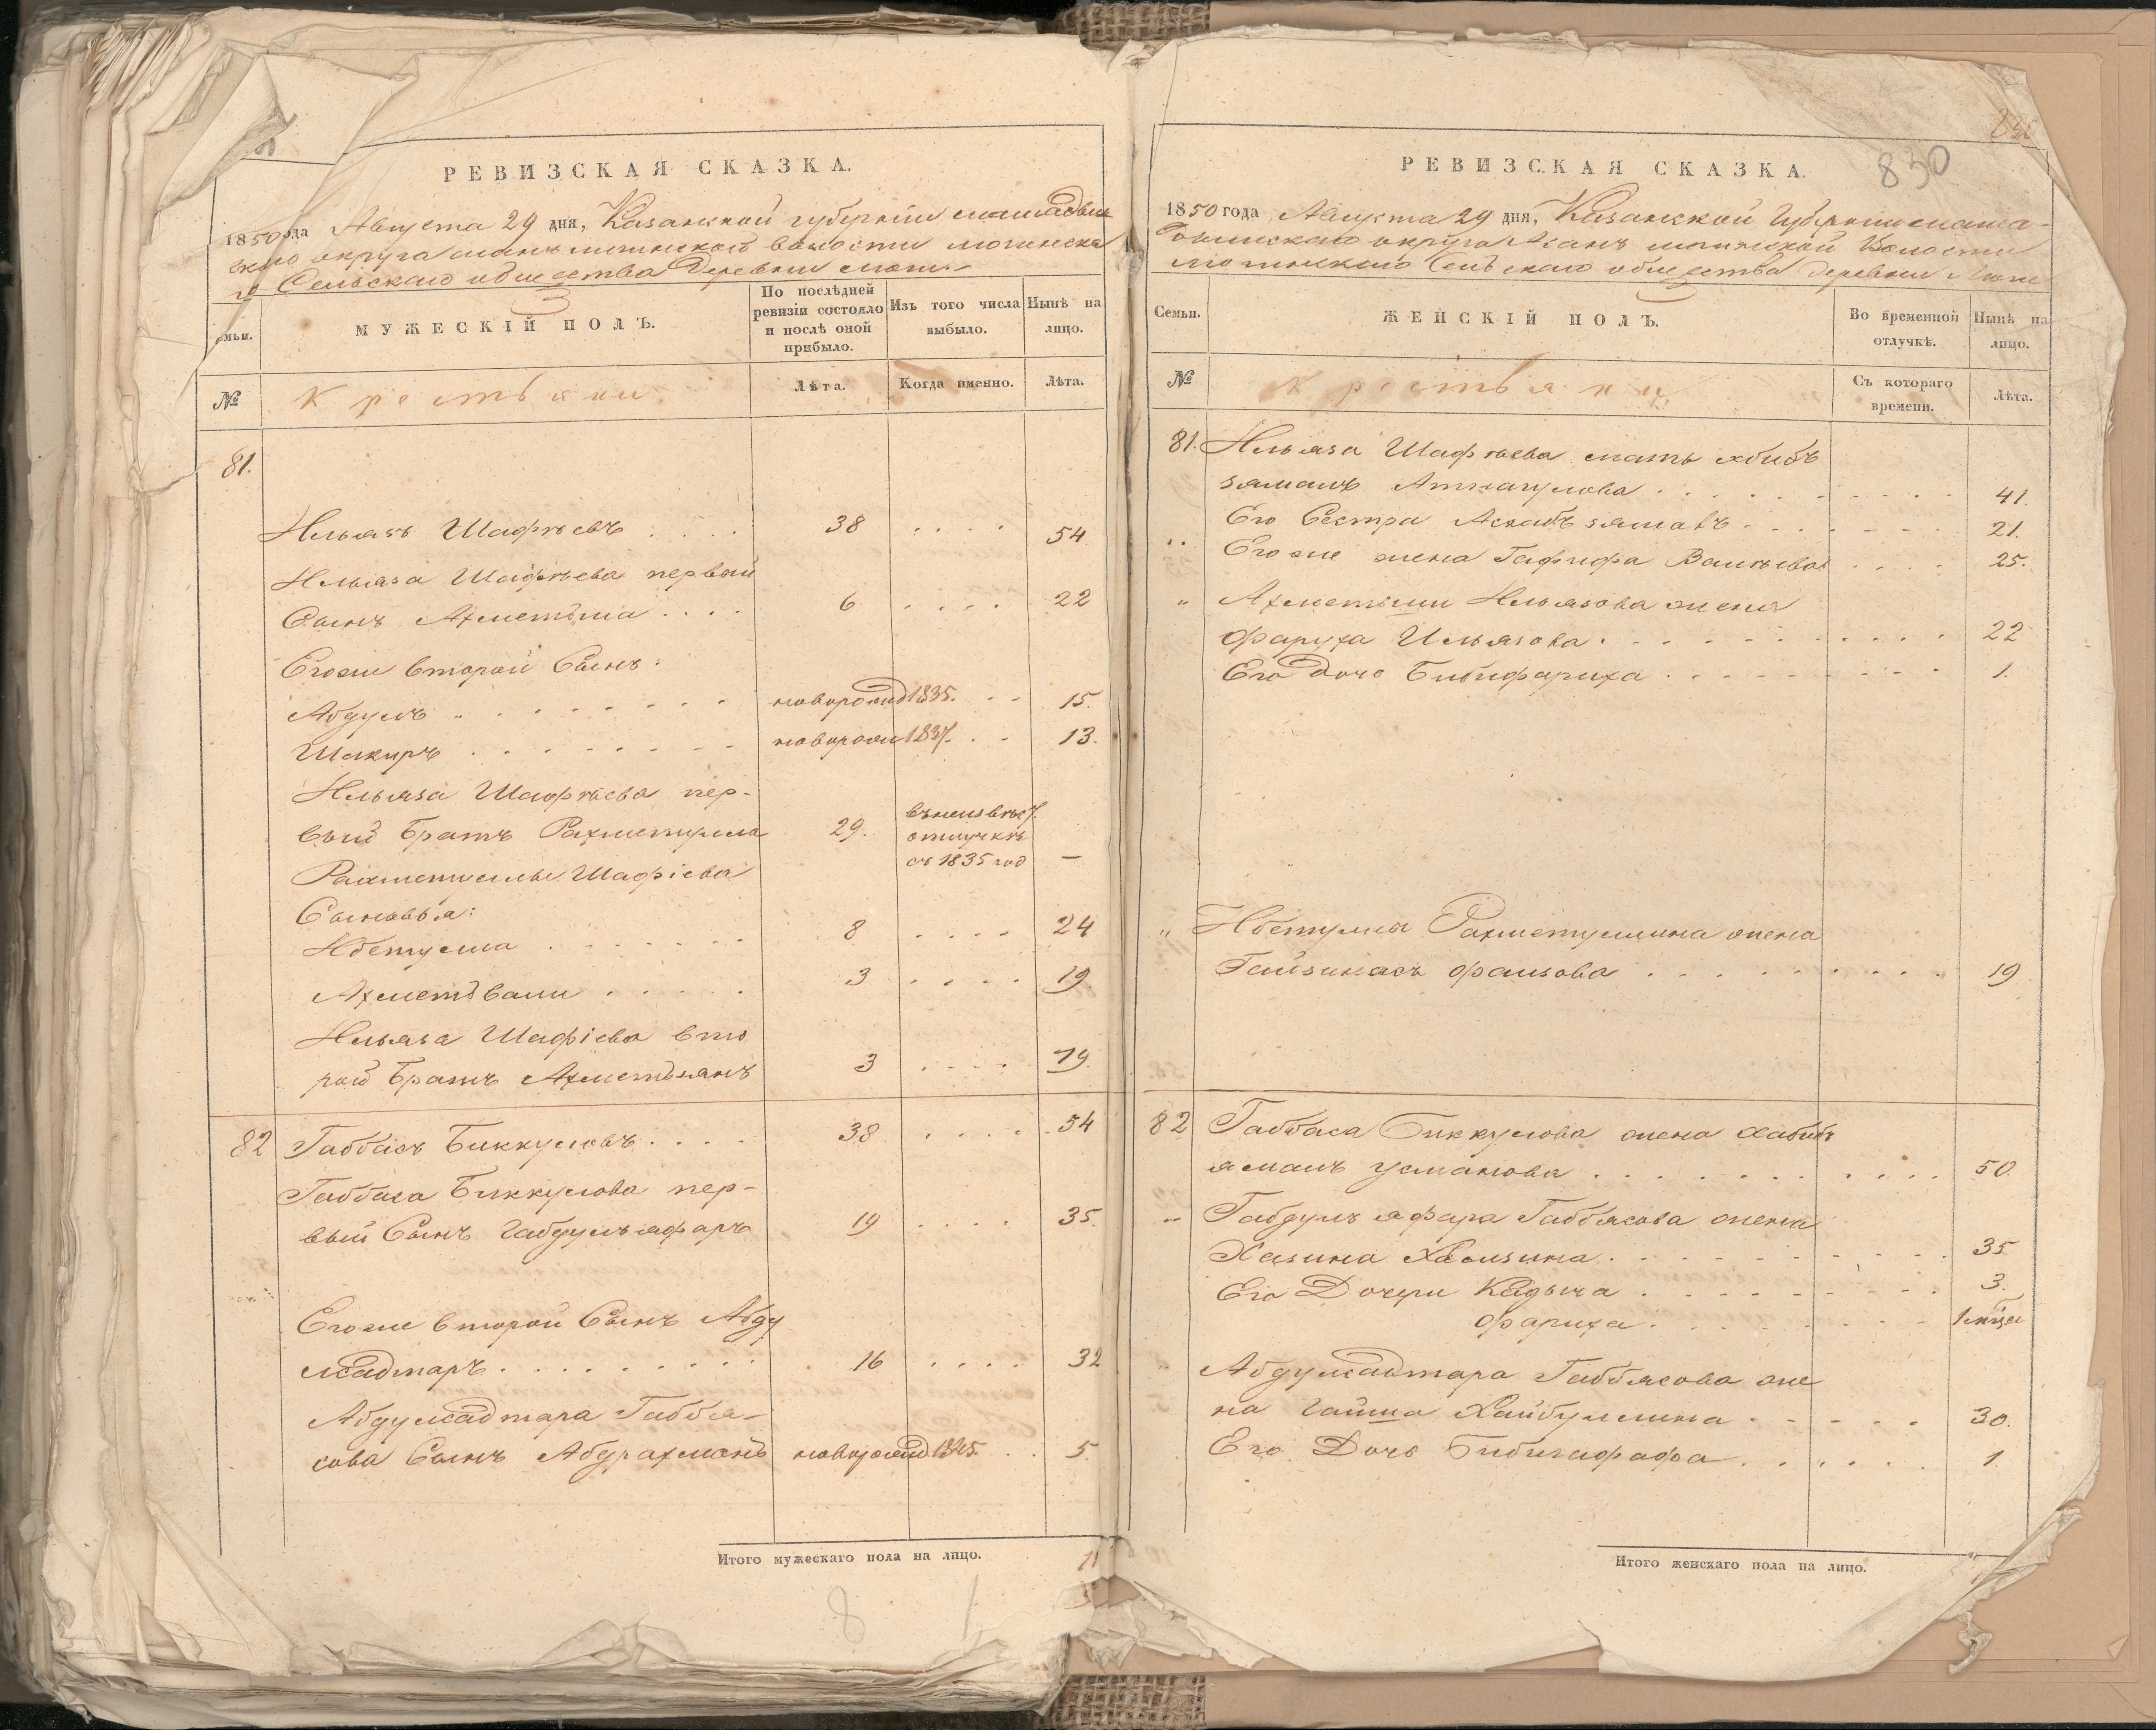 РЕВИЗСКАЯ СКАЗКА.
1850 года Августа 29 дня, Казанской губернии мамадыш
скаго округа волости
го Сельскаго общества деревни
МУЖЕСКІЙ ПОЛЪ.
По послѣдней ревизіи состояло и послѣ оной прибыло.
Изъ того числа выбыло.
Нынѣ на лицо.
№
Крестьяни
Лѣта.
Когда именно.
Лѣта.
81.
Ильязъ Шафѣевъ . . . . 38 . . . . 54
Ильяза Шафѣева первой
Сынъ Ахметша . . . . 6 . . . . 22
Егоже второй Сынъ:
Абдулъ . . . . . . . . новорожд 1835. . . 15.
Шакиръ . . . . . . . новорож 1837. . . 13.
Ильяза Шафѣева пер-
вый Братъ Рахметулла 29. въ неизвѣс.
отлучкѣ
съ 1835 год —
Рахметуллы Шафіева
Сыновья:
Ибетулла . . . . . . 8 . . . . 24
Ахметвали . . . . . 3 . . . . 19.
Ильяза Шафіева вто
рой Братъ Ахметзянъ 3 . . . . 19.
82 Габбасъ Биккуловъ . . . . 38 . . . . 54
Габбаса Биккулова пер-
вый Сынъ Габдулъяфаръ 19 . . . . 35.
Егоже второй Сынъ Абду
лсаттаръ . . . . . . . . 16 . . . . 32
Абдулсаттара Габбя-
сова Сынъ Абдрахманъ новорожд 1845. . . 5.
Итого мужескаго пола на лицо.
РЕВИЗСКАЯ СКАЗКА.
830
1850 года Августа 29 дня, Казанской Губернии мама-
дышскаго округа Волости
Сельскаго общества деревни
Семьи.
ЖЕНСКІЙ ПОЛЪ.
Во временной отлучкѣ.
Нынѣ на лицо.
№
Крестьяни
Съ котораго времени.
Лѣта.
81. Ильяза Шафѣева мать хбибъ
зяманъ Аткагулова . . . . . . . . . . 41.
Его Сестра . . . . . . . 21.
Егоже жена Гафифа Валѣева . . . . 25.
„ Ахметши Ильязова жена
Фаруха Ильязова . . . . . . . . . . . 22
Его Дочь Бибифариха . . . . . . . . . 1.
„ Ибетуллы Рахметуллина жена
Файзова . . . . . . . . . 19
82 Габбаса Биккулова жена Хабибъ
яманъ Усманова . . . . . . . . . . . 50.
„ Габдулъяфара Габбясова жена
Хазина . . . . . . . . . . 35
Его Дочери Кадыча . . . . . . . . 3.
Фариха . . . . . . . . 1 мѣца
„ Абдулсаттара Габбясова же
на Гайша Хайбуллина . . . . . 30.
Его Дочь Бибигафафа . . . . . . 1.
Итого женскаго пола на лицо.